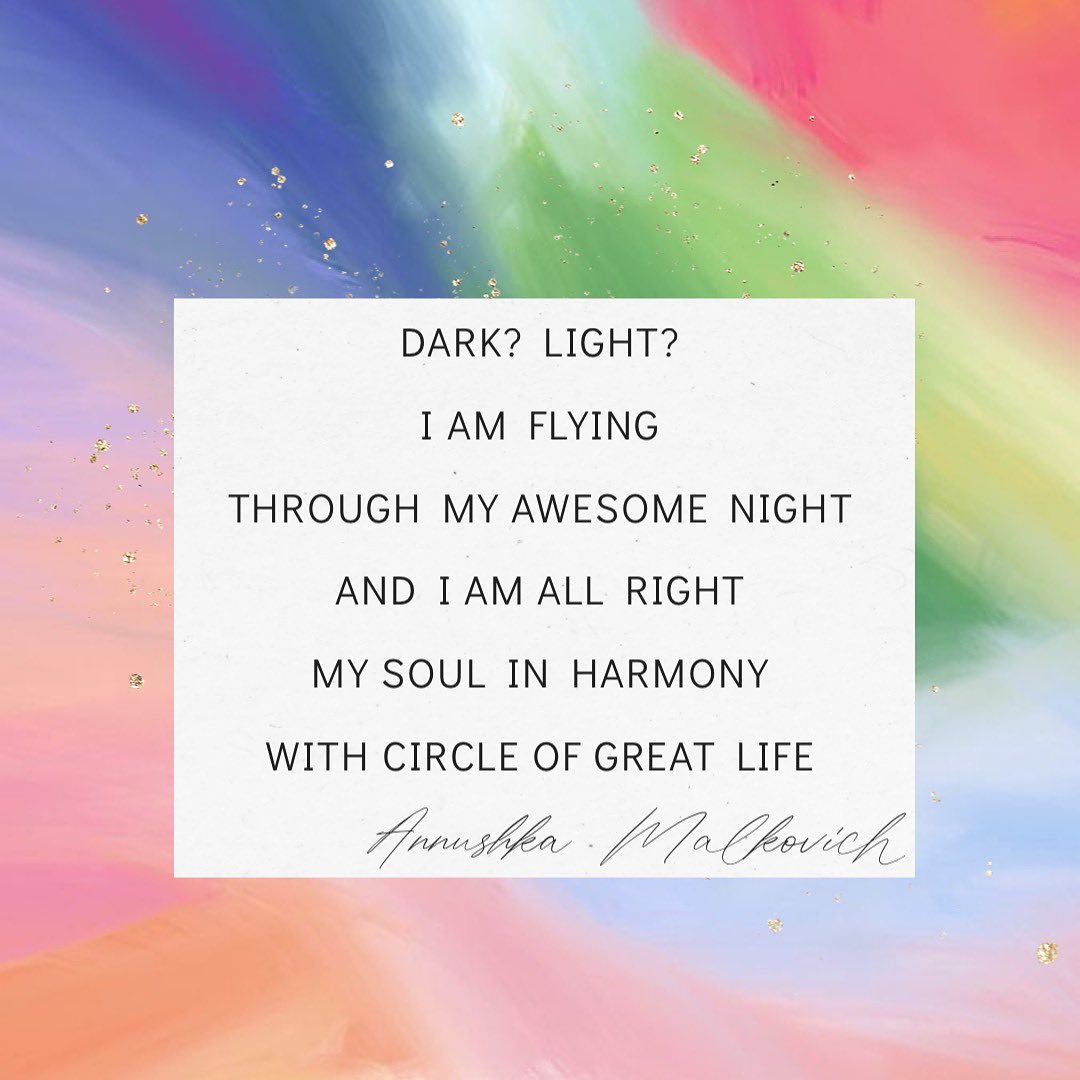 DARK? LIGHT?
I AM FLYING
THROUGH MY AWESOME NIGHT
AND I AM ALL RIGHT
MY SOUL IN HARMONY
WITH CIRCLE OF GREAT LIFE
Annushka Malkovich